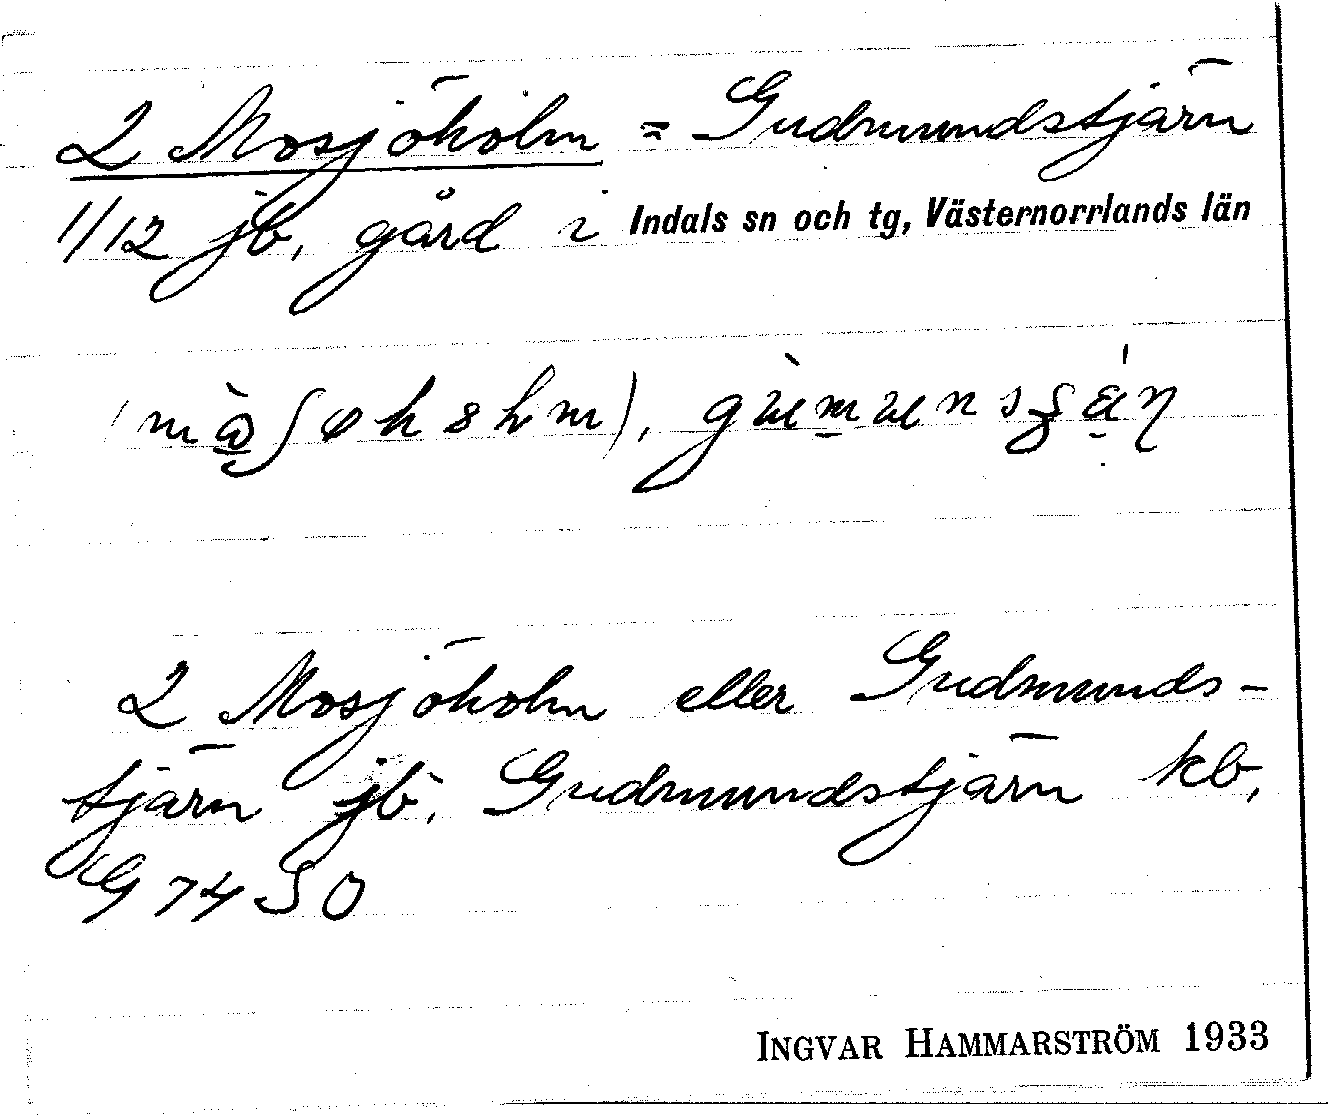 2 Mosjöholm = Gudmundstjärn
1/12 jb, gård i Indals sn och tg, Västernorrlands län
2 Mosjöholm eller Gudmunds-
tjärn jb, Gudmundstjärn kb,
G 74 SO
INGVAR HAMMARSTRÖM 1933